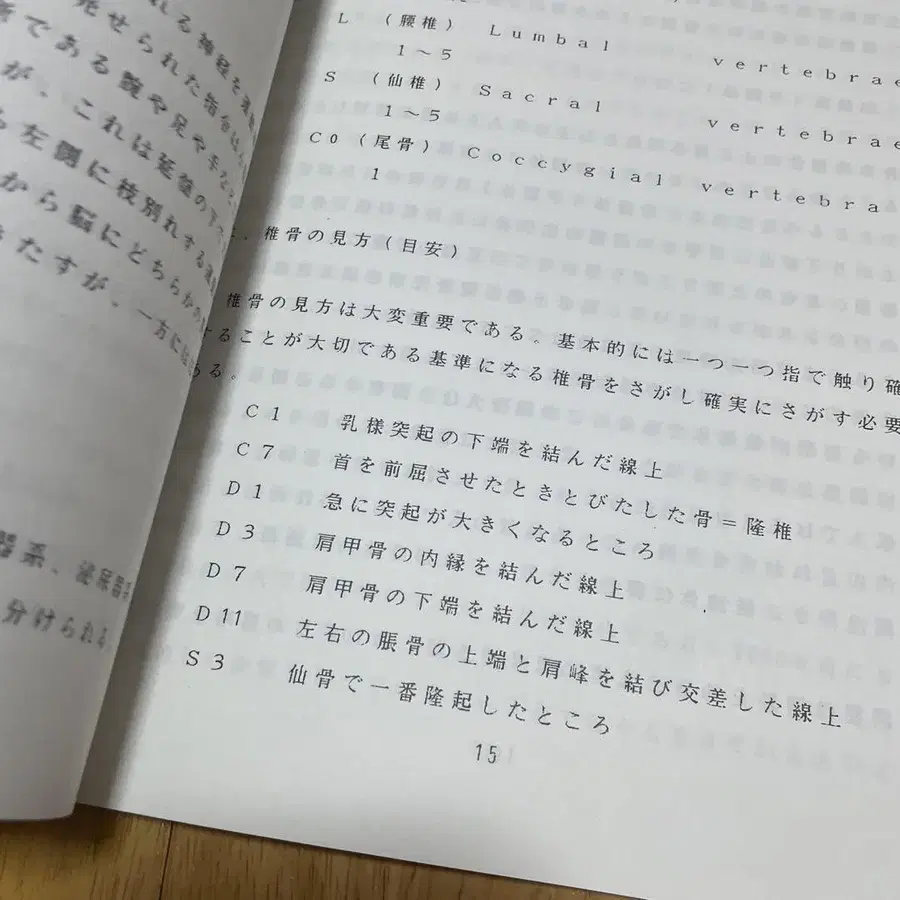 L （腰椎） Lumbal vertebrae
1～5
S （仙椎） Sacral vertebrae
1～5
C0 （尾骨） Coccygial vertebra
1
．椎骨の見方（目安）
椎骨の見方は大変重要である。基本的には一つ一つ指で触り確
することが大切である基準になる椎骨をさがし確実にさがす必要
ある。
C1 乳様突起の下端を結んだ線上
C7 首を前屈させたときとびたした骨＝隆椎
D1 急に突起が大きくなるところ
D3 肩甲骨の内縁を結んだ線上
D7 肩甲骨の下端を結んだ線上
D11 左右の脹骨の上端と肩峰を結び交差した線上
S3 仙骨で一番隆起したところ
15
れる神経を
せられた指令は
である腕や足や手な
が、これは延髄の下
左側に枝別れする
から脳にどちらかの
きたすが、一方に
器系、泌尿器
分けられる。